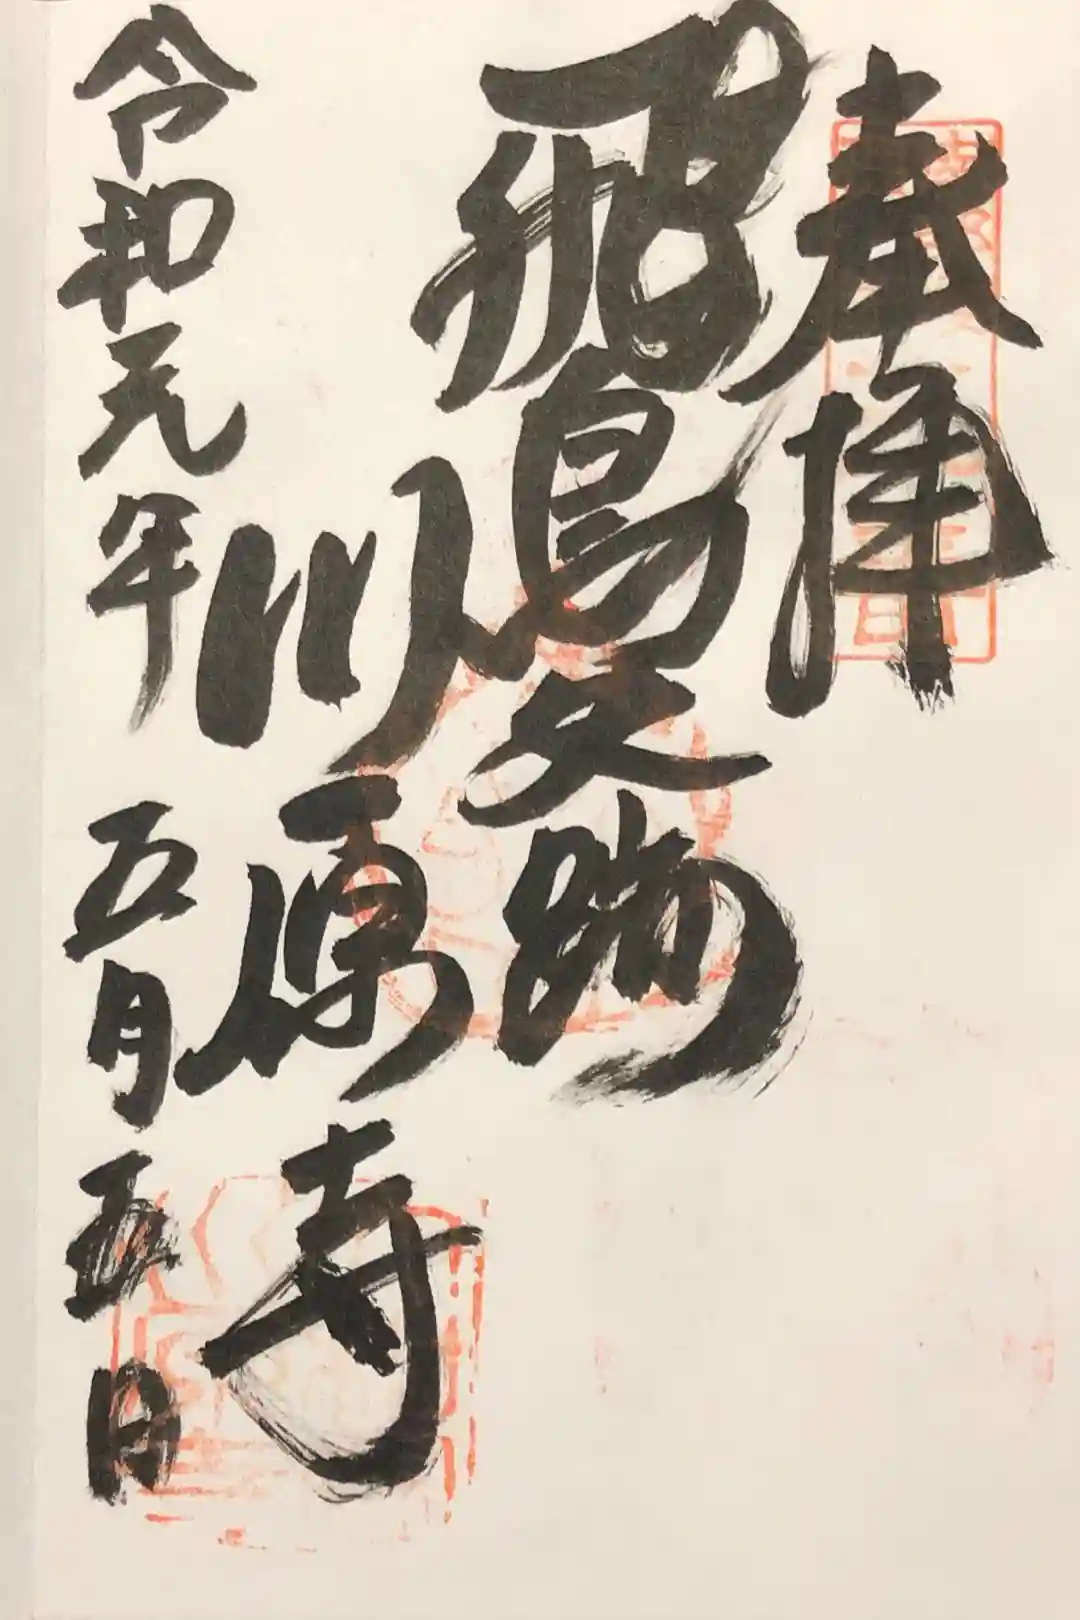 奉拝
飛鳥史跡
川原寺
令和元年 五月 五日